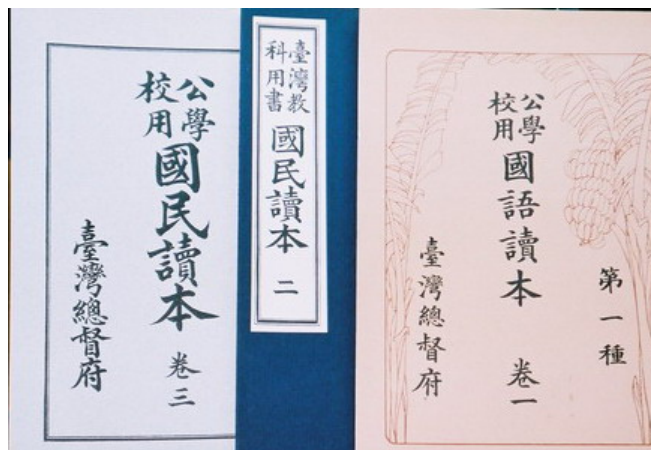 公學校用
國民讀本
卷三
臺灣總督府
臺灣教科用書
國民讀本
二
第一種
公學校用
國語讀本
卷一
臺灣總督府